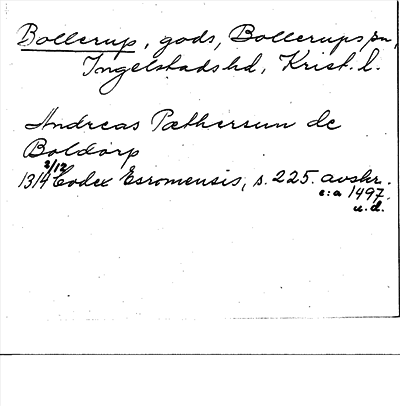 Bollerup, gods, Bollerups sn,
Ingelstads hd, Krist. l.
Andreas Pæthersun de
Boldorp
1314 2/12 Codex Esromensis, s. 225. avskr.
c:a 1497.
u.d.